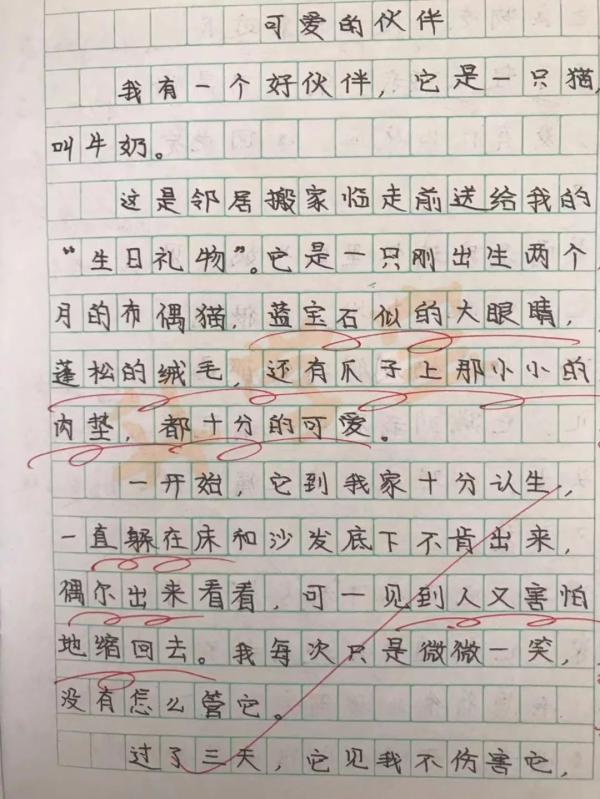 可爱的伙伴
我有一个好伙伴，它是一只猫，
叫牛奶。
这是邻居搬家临走前送给我的
“生日礼物”。它是一只刚出生两个
月的布偶猫，蓝宝石似的大眼睛，
蓬松的绒毛，还有爪子上那小小的
肉垫，都十分的可爱。
一开始，它到我家十分认生，
一直躲在床和沙发底下不肯出来，
偶尔出来看看，可一见到人又害怕
地缩回去。我每次只是微微一笑，
没有怎么管它。
过了三天，它见我不伤害它，